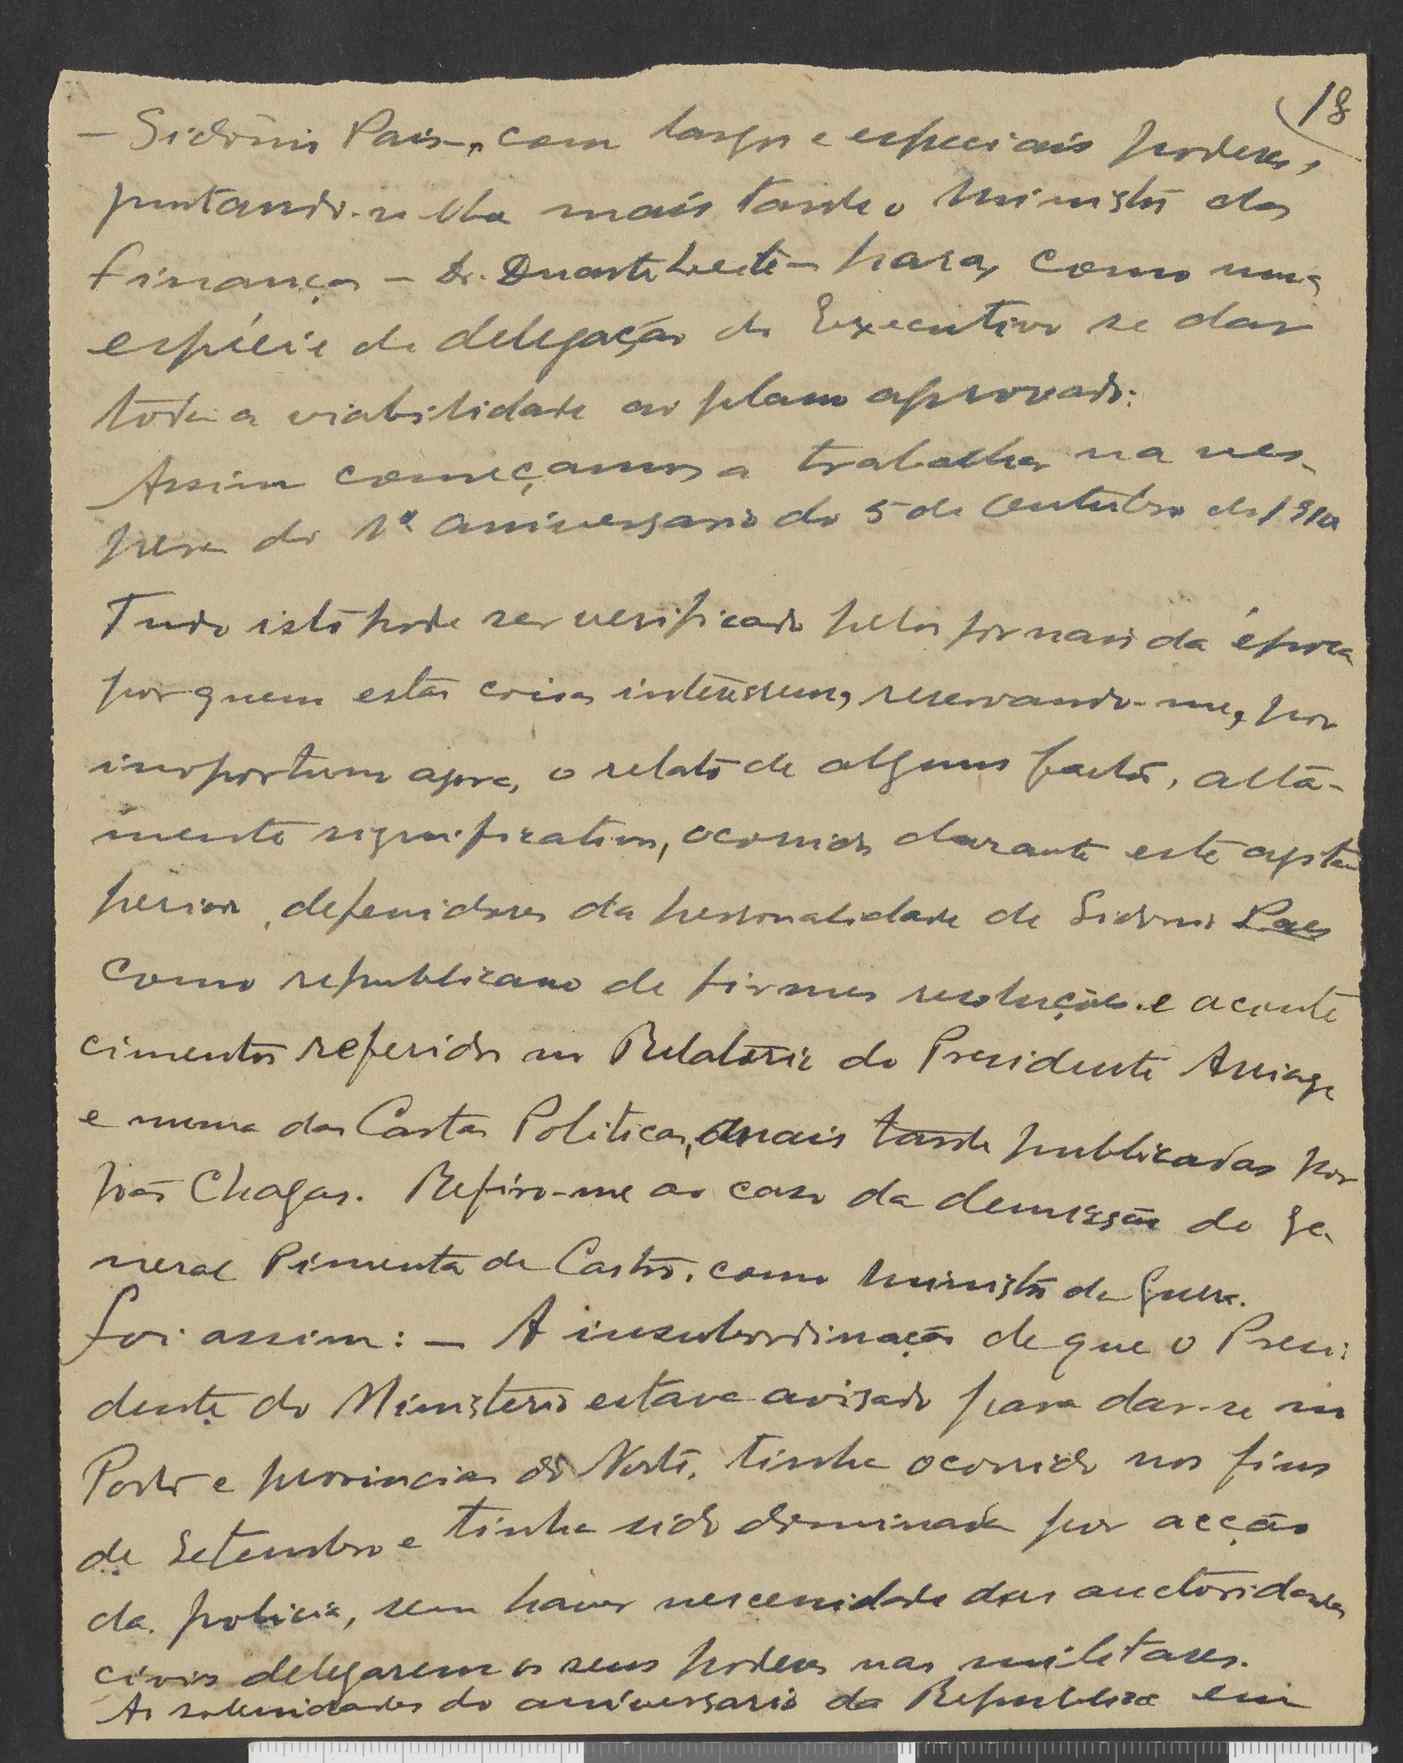 18
— Sidónio Pais —, com largos e especiais poderes,
juntando-se-lhe mais tarde o Ministro das
Finanças — Dr. Duarte Leite — para, como uma
espécie de delegação do Executivo se dar
toda a viabilidade ao plano aprovado.
Assim começamos a trabalhar na ves-
pera do 1º aniversario do 5 de Outubro de 1910
Tudo isto pode ser verificado pelos jornais da época
por quem estas coisas interessem, reservando-me, por
inoportuno agora, o relato de alguns factos, alta-
mente significativos, ocorridos durante este
periodo, defenidores da personalidade de Sidonio Paes
como republicano de firmes resoluções e aconte
cimentos referidos no Relatorio do Presidente Arriaga
e numa das Cartas Politicas, mais tarde publicadas por
João Chagas. Refiro-me ao caso da demissão do Ge-
neral Pimenta de Castro, como Ministro da Guerra.
Foi assim: — A insubordinação de que o Presi-
dente do Ministerio estava avisado para dar-se no
Porto e provincias do Norte, tinha ocorrido nos fins
de Setembro e tinha sido dominada por acção
da policia, sem haver necessidade das auctoridades
civis delegarem os seus poderes nas militares.
As solenidades do aniversario da Republica em